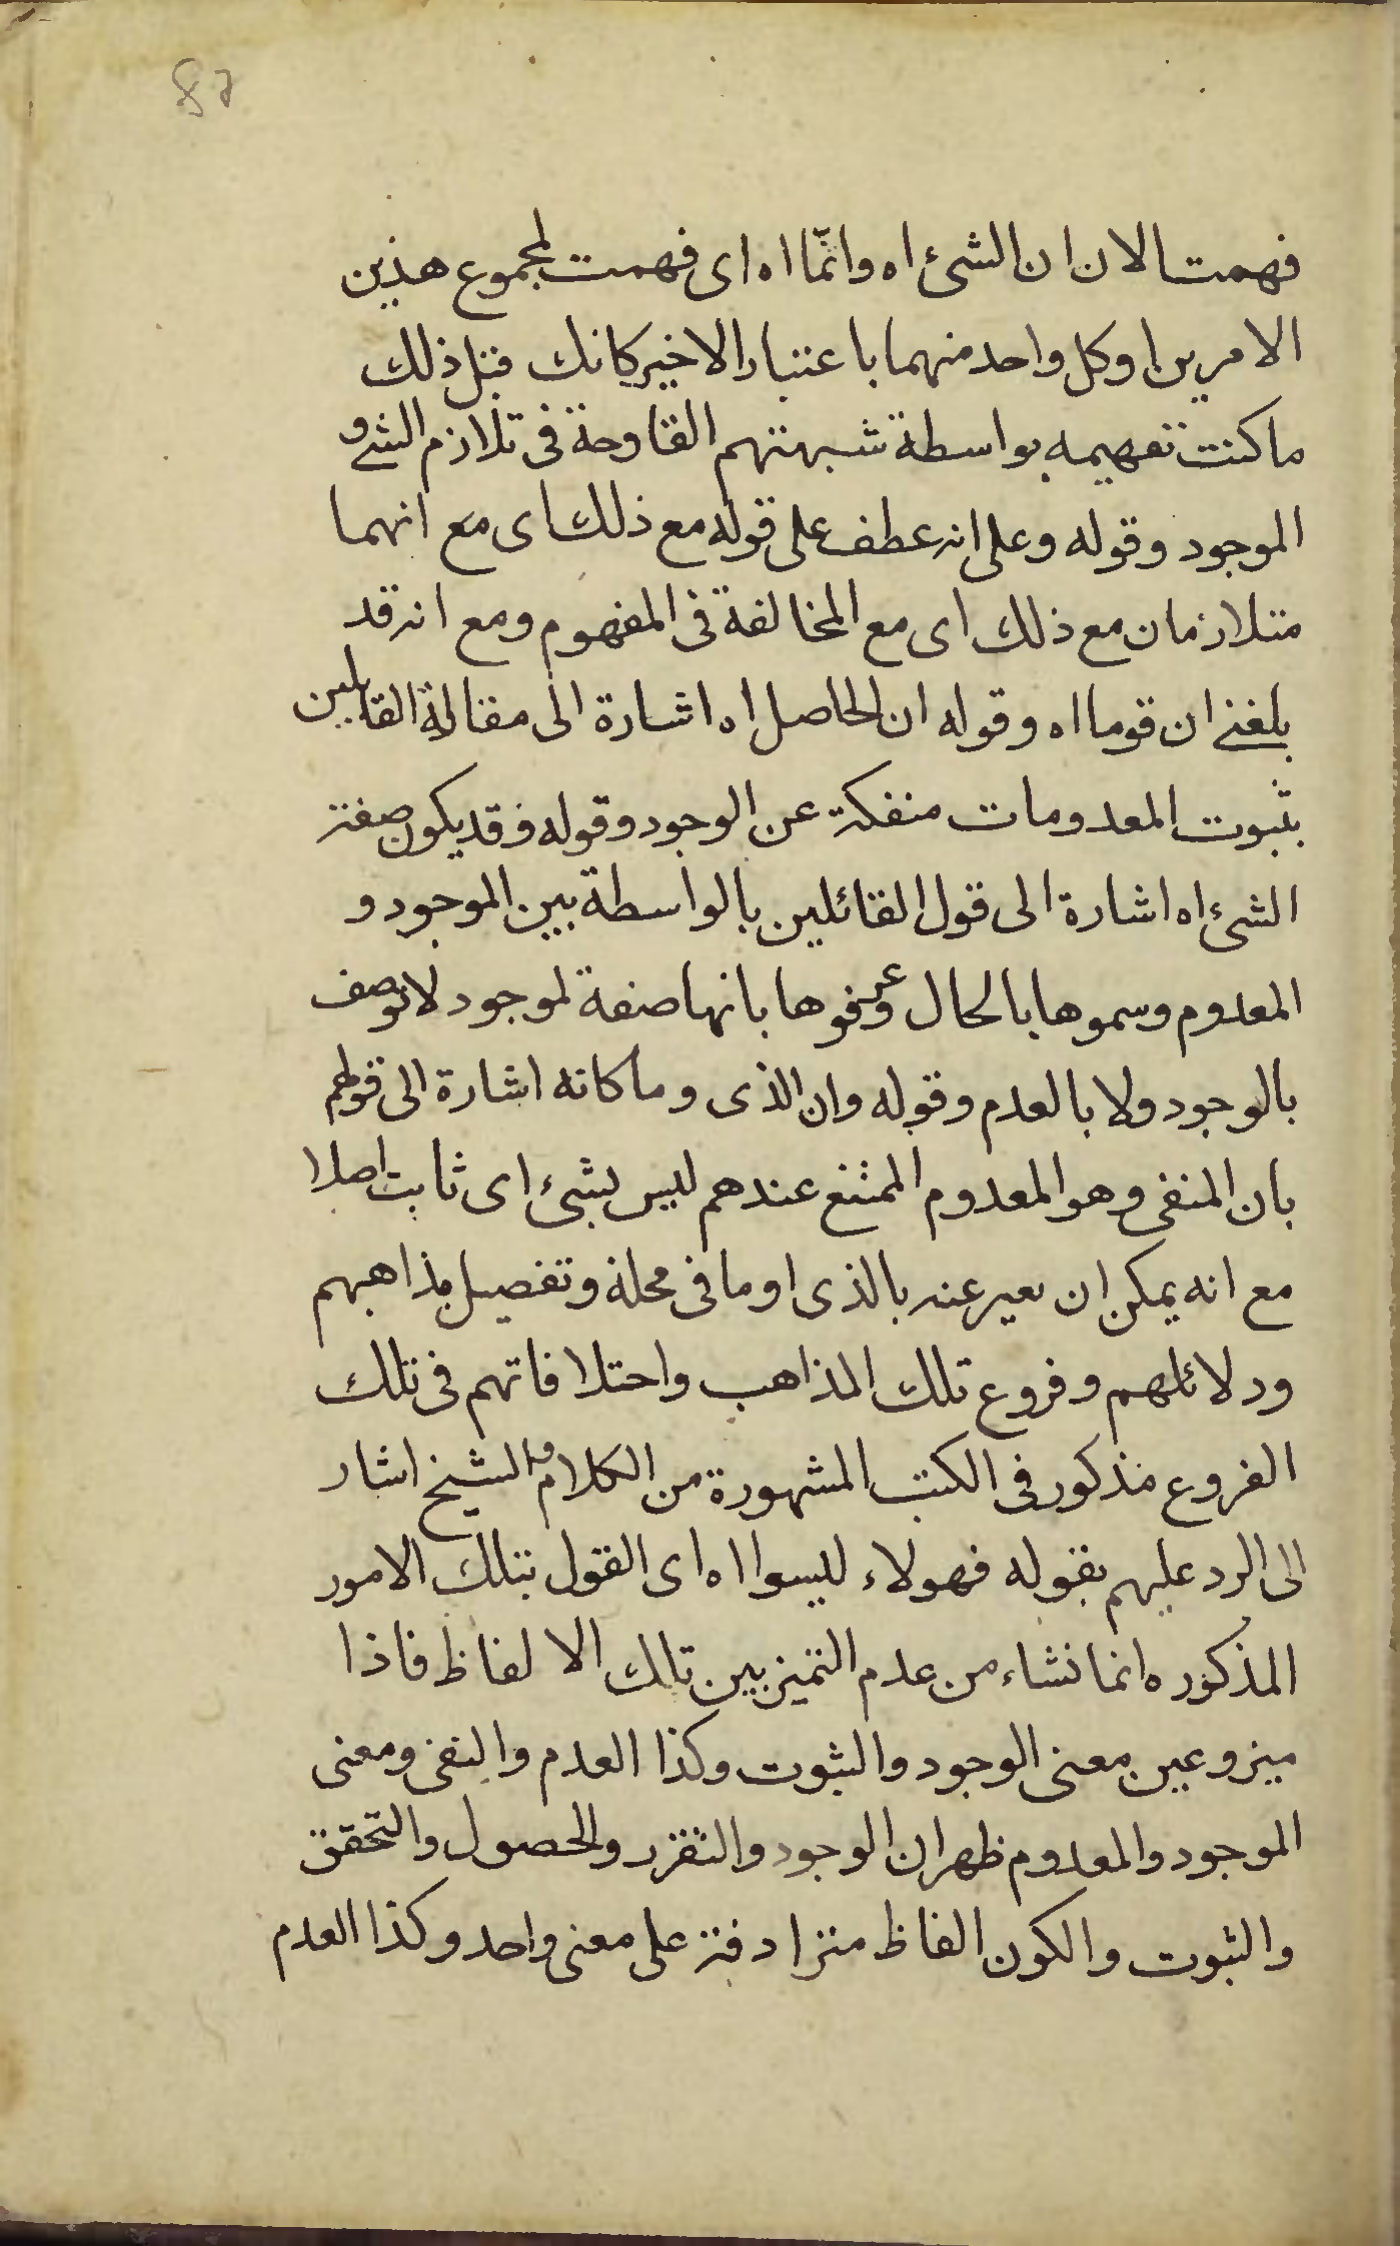 82
فهمت الان ان الشئ اه وانّما اه اى فهمت لمجموع هذين
الامرين او كل واحد منهما باعتبار الاخير كانك قبل ذلك
ما كنت تفهيمه بواسطة شبهتهم القادحة فى تلازم الشئ و
الموجود وقوله وعلى انه عطف على قوله مع ذلك اى مع انهما
متلازمان مع ذلك اى مع المخالفة فى المفهوم ومع انه قد
بلغنى ان قوما اه وقوله ان الحاصل اه اشارة الى مقالة القايلين
بثبوت المعدومات منفكة عن الوجود وقوله وقد يكون صفة
الشئ اه اشارة الى قول القائلين بالواسطة بين الموجود و
المعدوم وسموها بالحال وعرفوها بانها صفة لموجود لا توصف
بالوجود ولا بالعدم وقوله وان الذى وما كانه اشارة الى قولهم
بان المنفى وهو المعدوم الممتنع عندهم ليس بشئ اى ثابت اصلا
مع انه يمكن ان يعبر عنه بالذى او ما فى محلة وتفصيل مذاهبهم
ودلائلهم وفروع تلك المذاهب واختلافاتهم فى تلك
الفروع مذكور فى الكتب المشهورة من الكلام والشيخ اشار
الى الرد عليهم بقوله فهولاء ليسوا اه اى القول بتلك الامور
المذكوره انما نشاء من عدم التميز بين تلك الالفاظ فاذا
ميز وعين معنى الوجود والثبوت وكذا العدم والنفى ومعنى
الموجود والمعدوم ظهر ان الوجود والتقرر والحصول والتحقق
والثبوت والكون الفاظ مترادفة على معنى واحد وكذا العدم